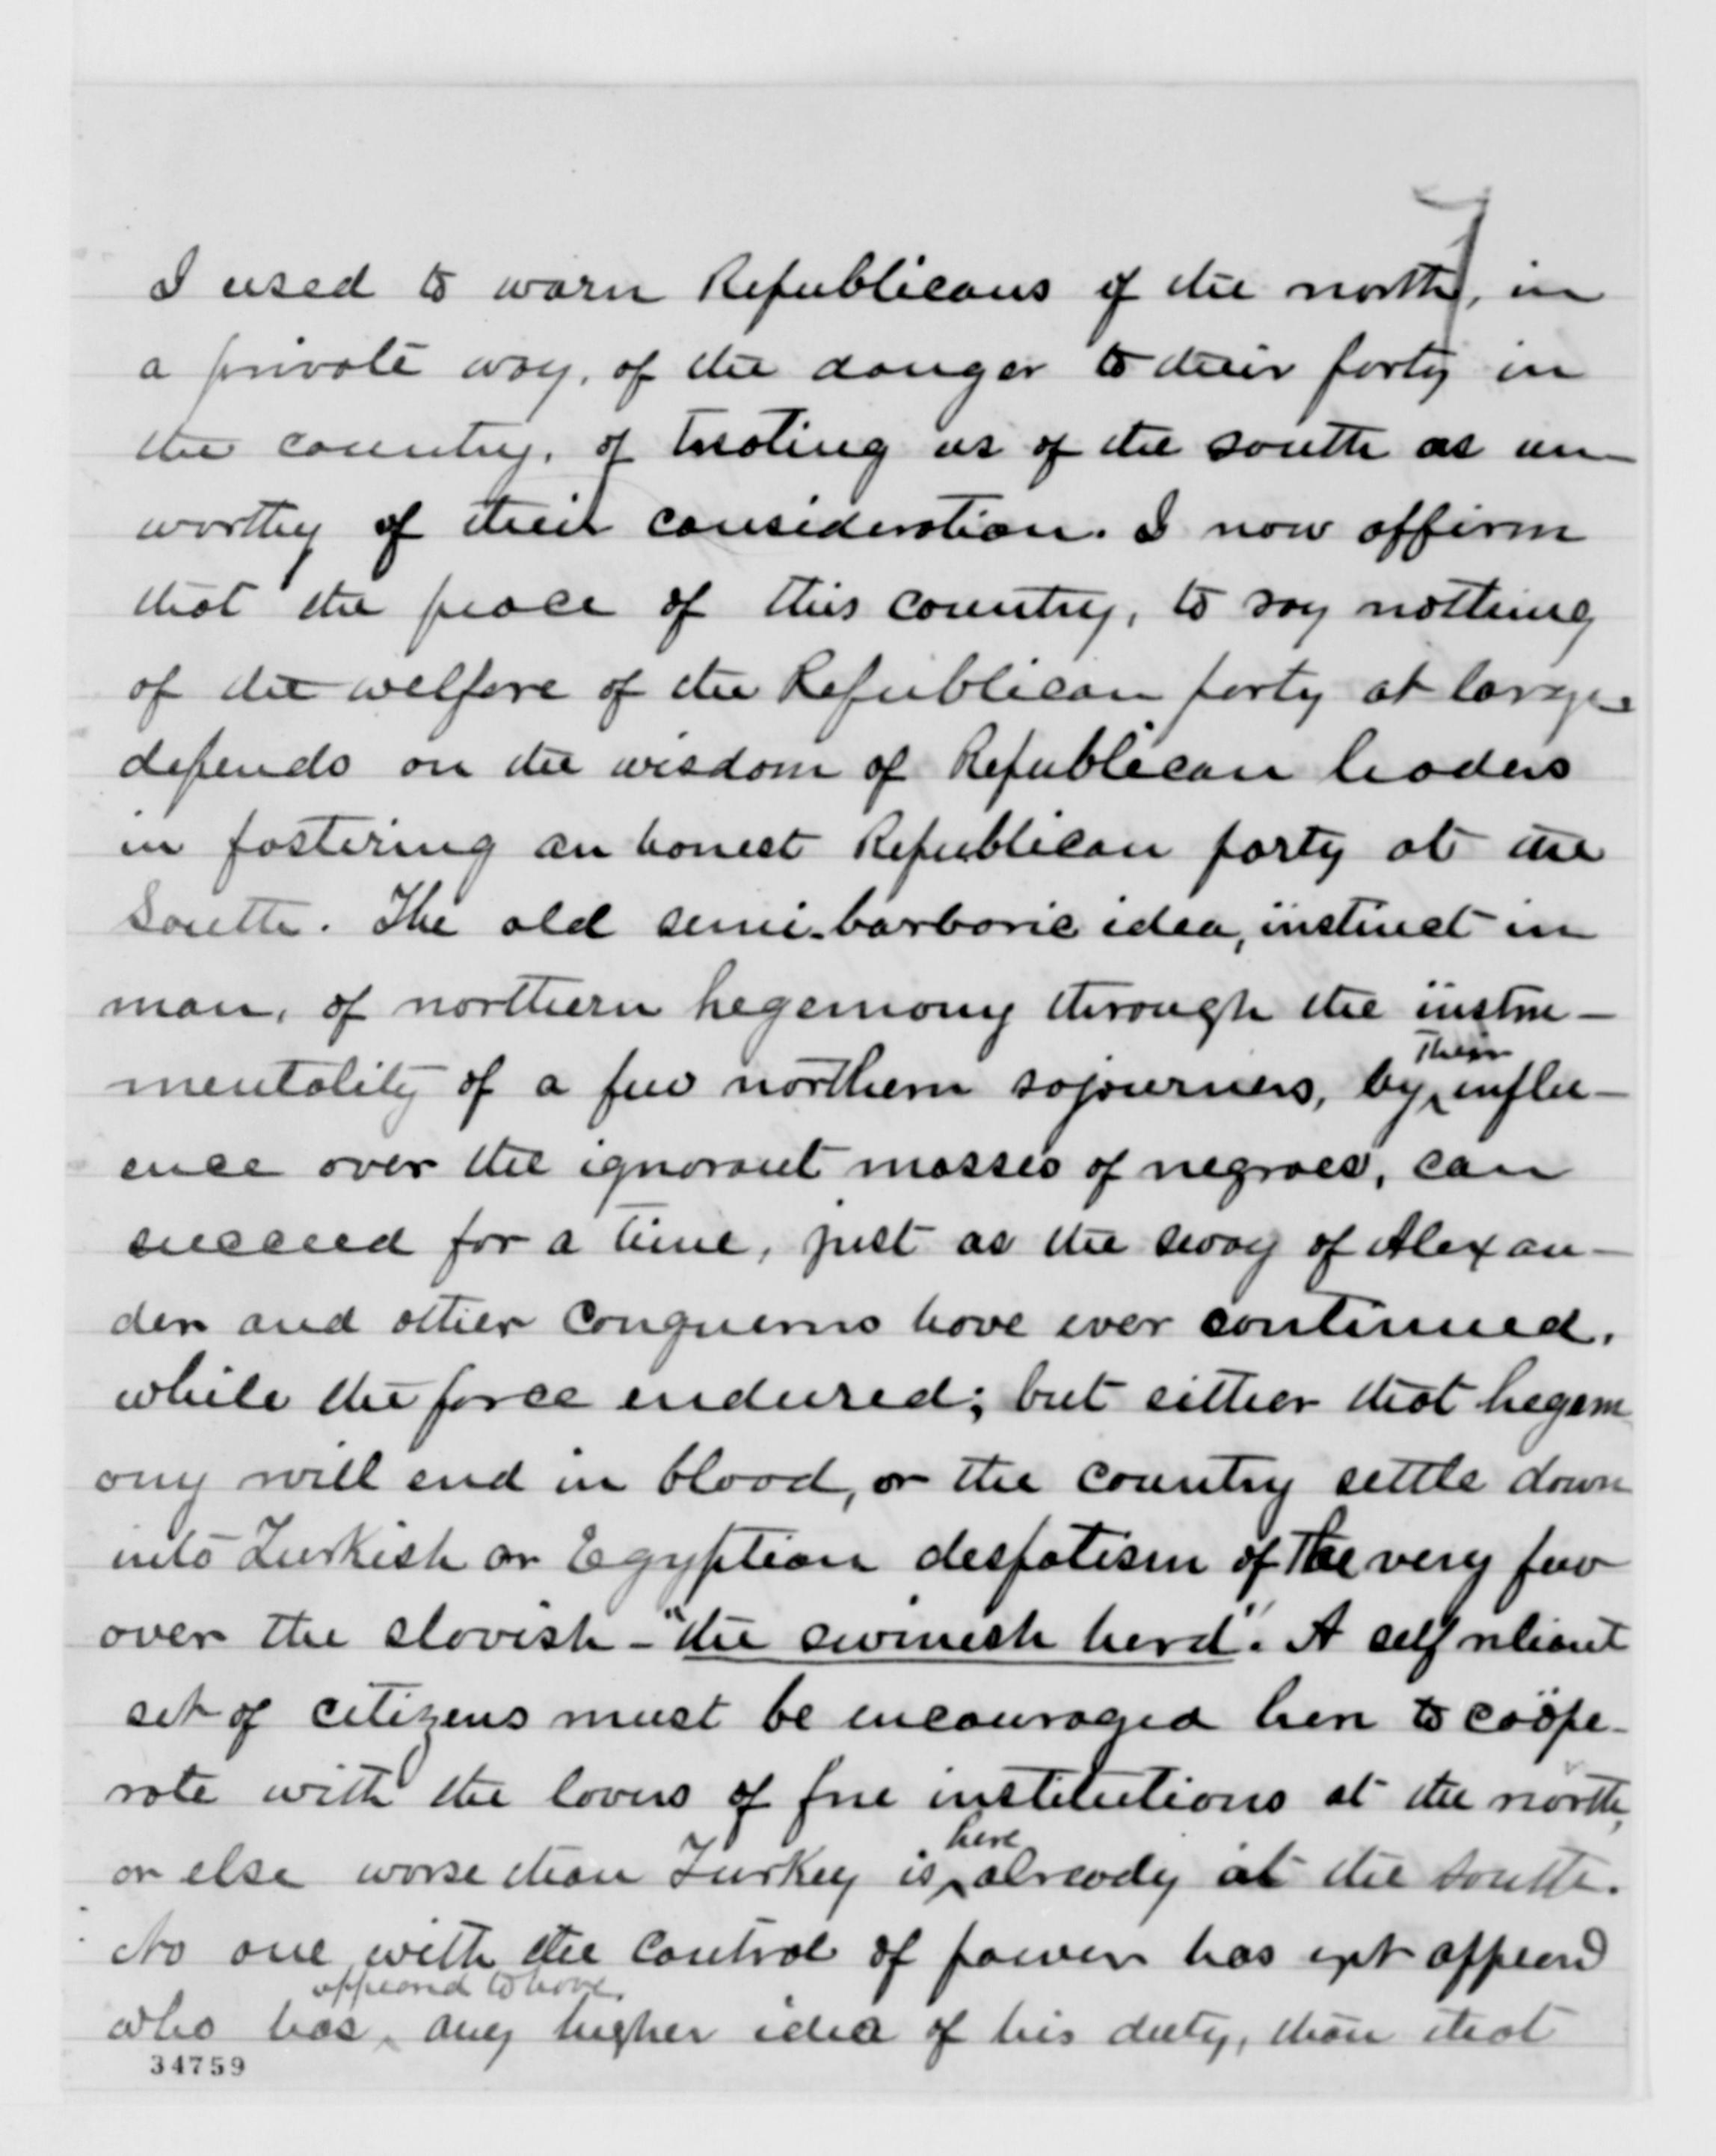 7
I used to warn Republicans of the north, in
a private way, of the danger to their party in
the country, of treating us of the south as un-
worthy of their consideration. I now affirm
that the peace of this country, to say nothing
of the welfare of the Republican party at large
depends on the wisdom of Republican leaders
in fostering an honest Republican party at the
South. The old semi-barbaric idea, instinct in
man, of northern hegemony through the instru-
Their
mentality of a few northern sojourners, by influ-
ence over the ignorant masses of negroes, can
succeed for a time, just as the sway of Alexan-
der and other conquerors have ever continued,
while the force endured; but either that hegem
ony will end in blood, or the country settle down
into Turkish or Egyptian despotism of the very few
over the slavish - "the swinish herd". A self reliant
set of citizens must be encouraged here to coöpe-
rate with the lovers of free institutions at the north,
here
or else worse than Turkey is already at the South.
No one with the control of power has yet appeared
appeared to have
who has any higher idea of his duty, than that
34759